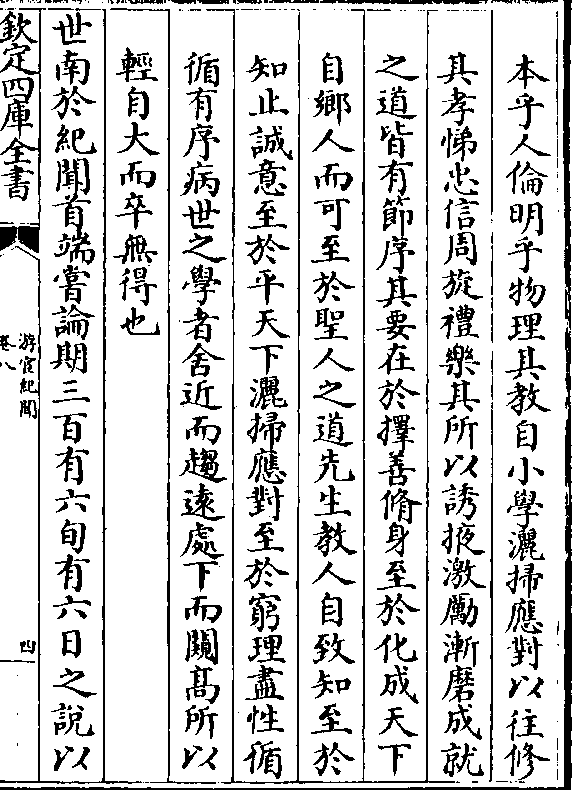 本乎人倫明乎物理其教自小學灑掃應對以往修
其孝悌忠信周旋禮樂其所以誘掖激勵漸磨成就
之道皆有節序其要在於擇善脩身至於化成天下
自鄉人而可至於聖人之道先生教人自致知至於
知止誠意至於平天下灑掃應對至於窮理盡性循
循有序病世之學者舍近而趨遠處下而闚髙所以
輕自大而卒無得也
世南於紀聞首端嘗論期三百有六旬有六日之說以
欽定四庫全書
游宦紀聞
卷八
四